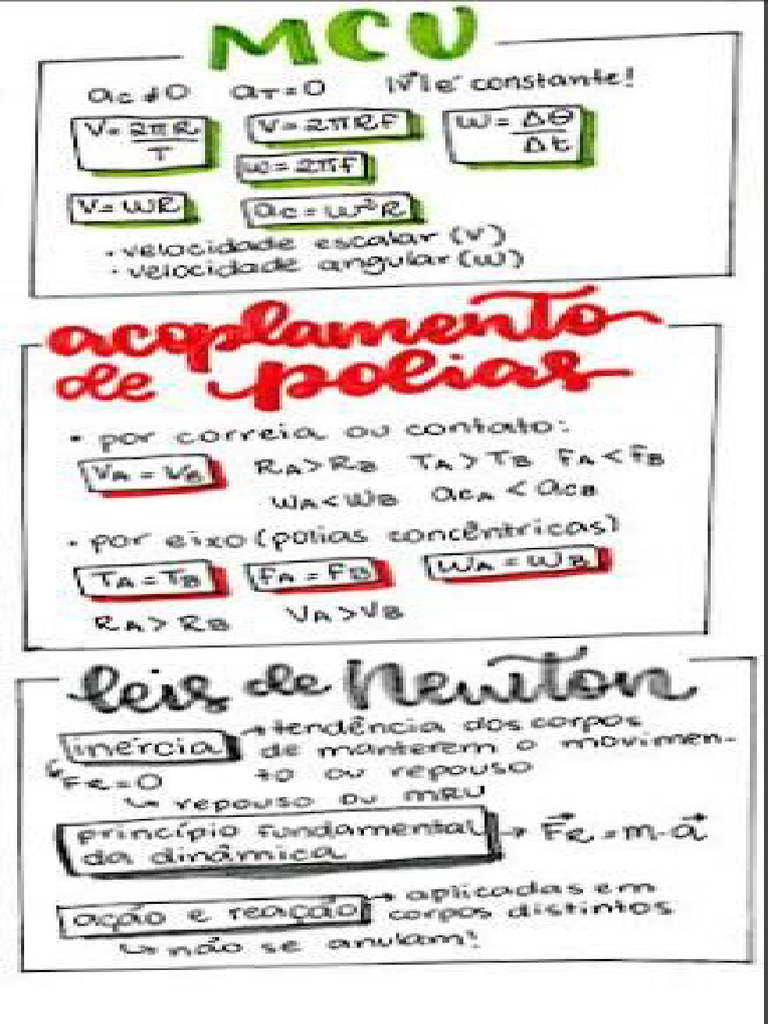 MCU
ac ≠ 0 aT = 0 |v⃗| é constante!
V = 2πR/T V = 2πRf W = Δθ/Δt
w = 2πf
V = WR ac = W²R
• velocidade escalar (V)
• velocidade angular (W)
acoplamento
de polias
• por correia ou contato:
VA = VB RA > RB TA > TB FA < FB
WA < WB acA < acB
• por eixo (polias concêntricas)
TA = TB FA = FB WA = WB
RA > RB VA > VB
leis de Newton
inércia → tendência dos corpos
de manterem o movimen-
to ou repouso
↳ FR = 0
↳ repouso ou MRU
princípio fundamental
da dinâmica → F⃗R = m · a⃗
ação e reação → aplicadas em
corpos distintos
↳ não se anulam!